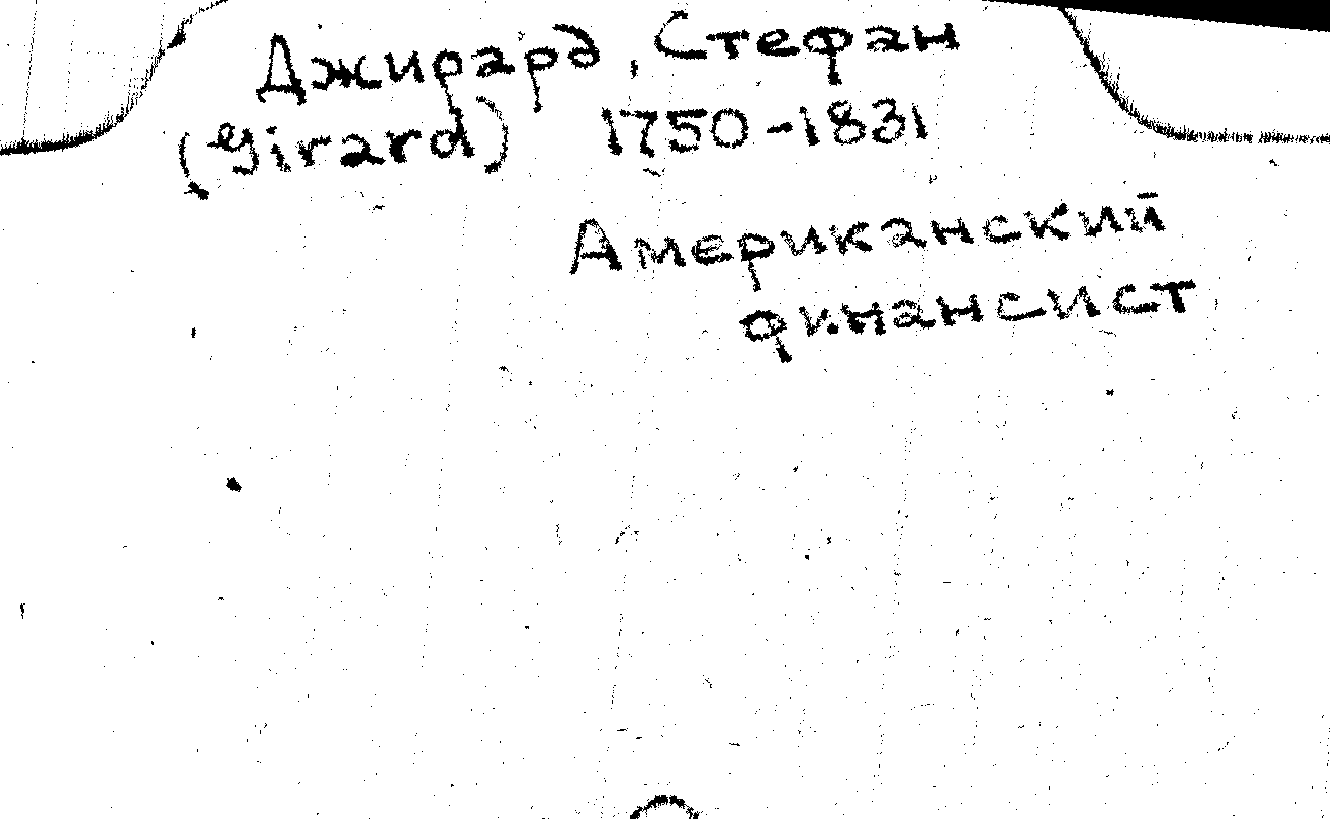 Джирард, Стефан
(Girard) 1750-1831
Американский
финансист